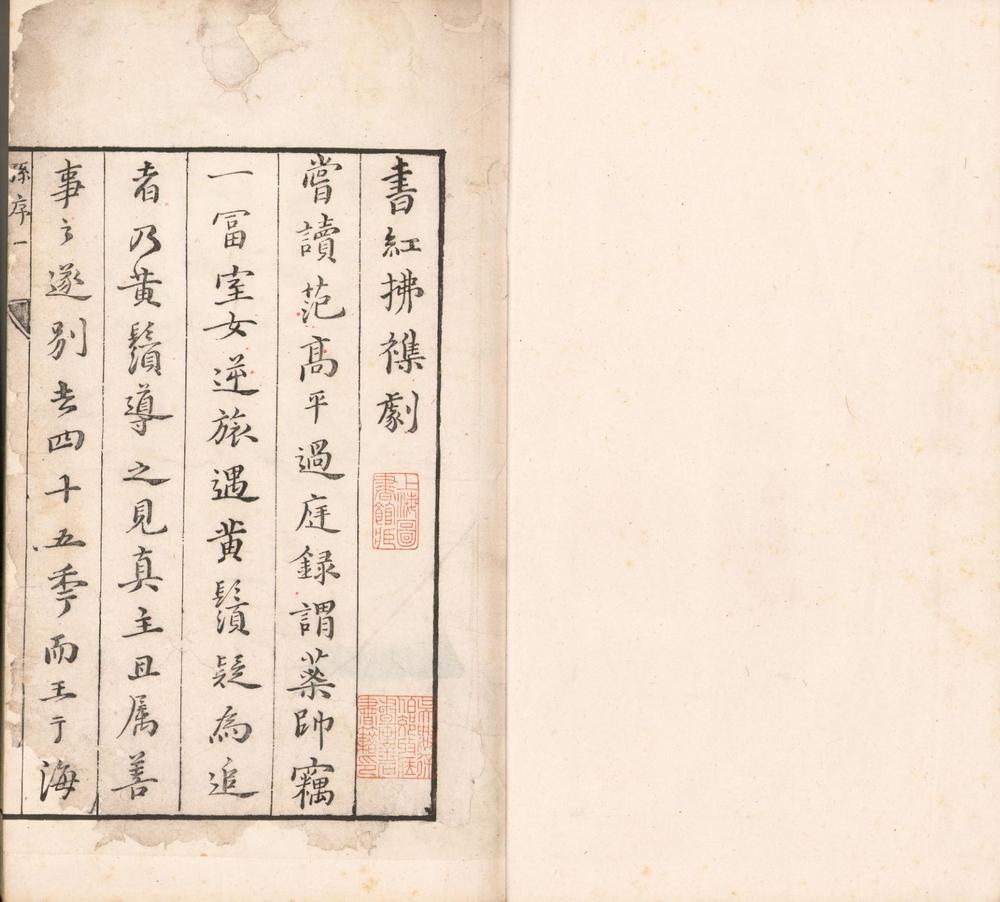 書紅拂襍劇
嘗讀范髙平過庭録謂藥師竊
一冨室女逆旅遇黄鬚疑為追
者乃黄鬚導之見真主且属善
事之遂别去四十五秊而王于海
孫序一
上海圖書館藏